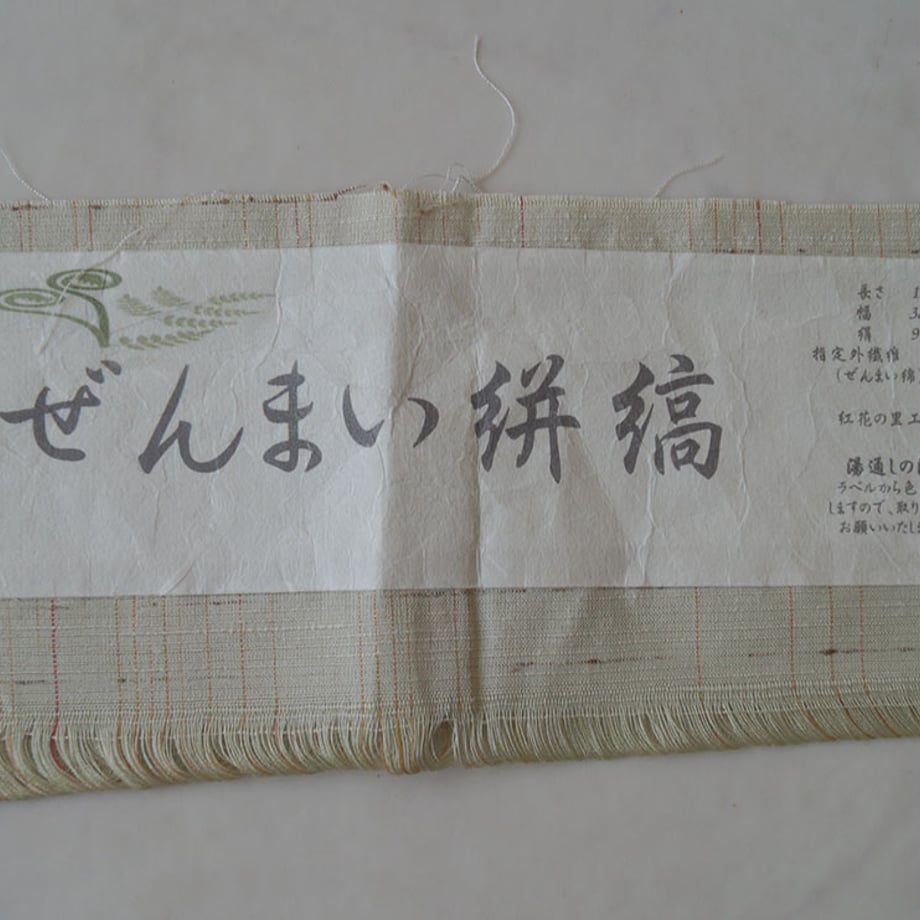 ぜんまい絣縞
長さ 1
幅 3
絹 9
指定外繊維
(ぜんまい綿
紅花の里工
湯通しの
ラベルから色
しますので、取り
お願いいたしま